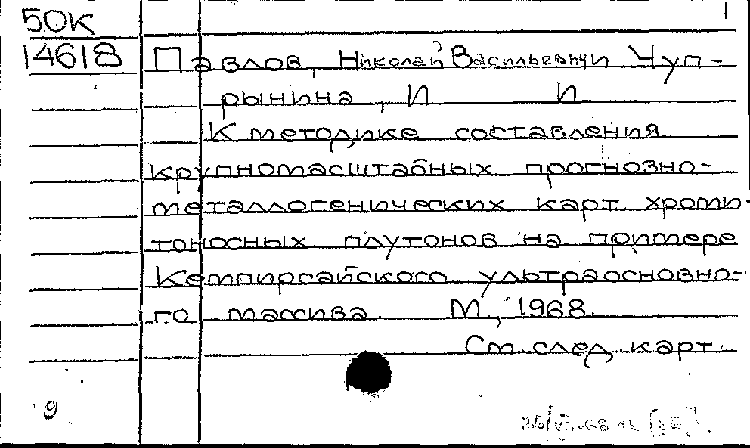 50К
14618
Павлов, Николай Васильевич Чуп-
рынина, И И
К методике составления
крупномасштабных прогнозно-
металлогенических карт хроми-
тоносных плутонов на примере
Кемпирсайского ультраосновно-
го массива М, 1968
См. след. карт.
9